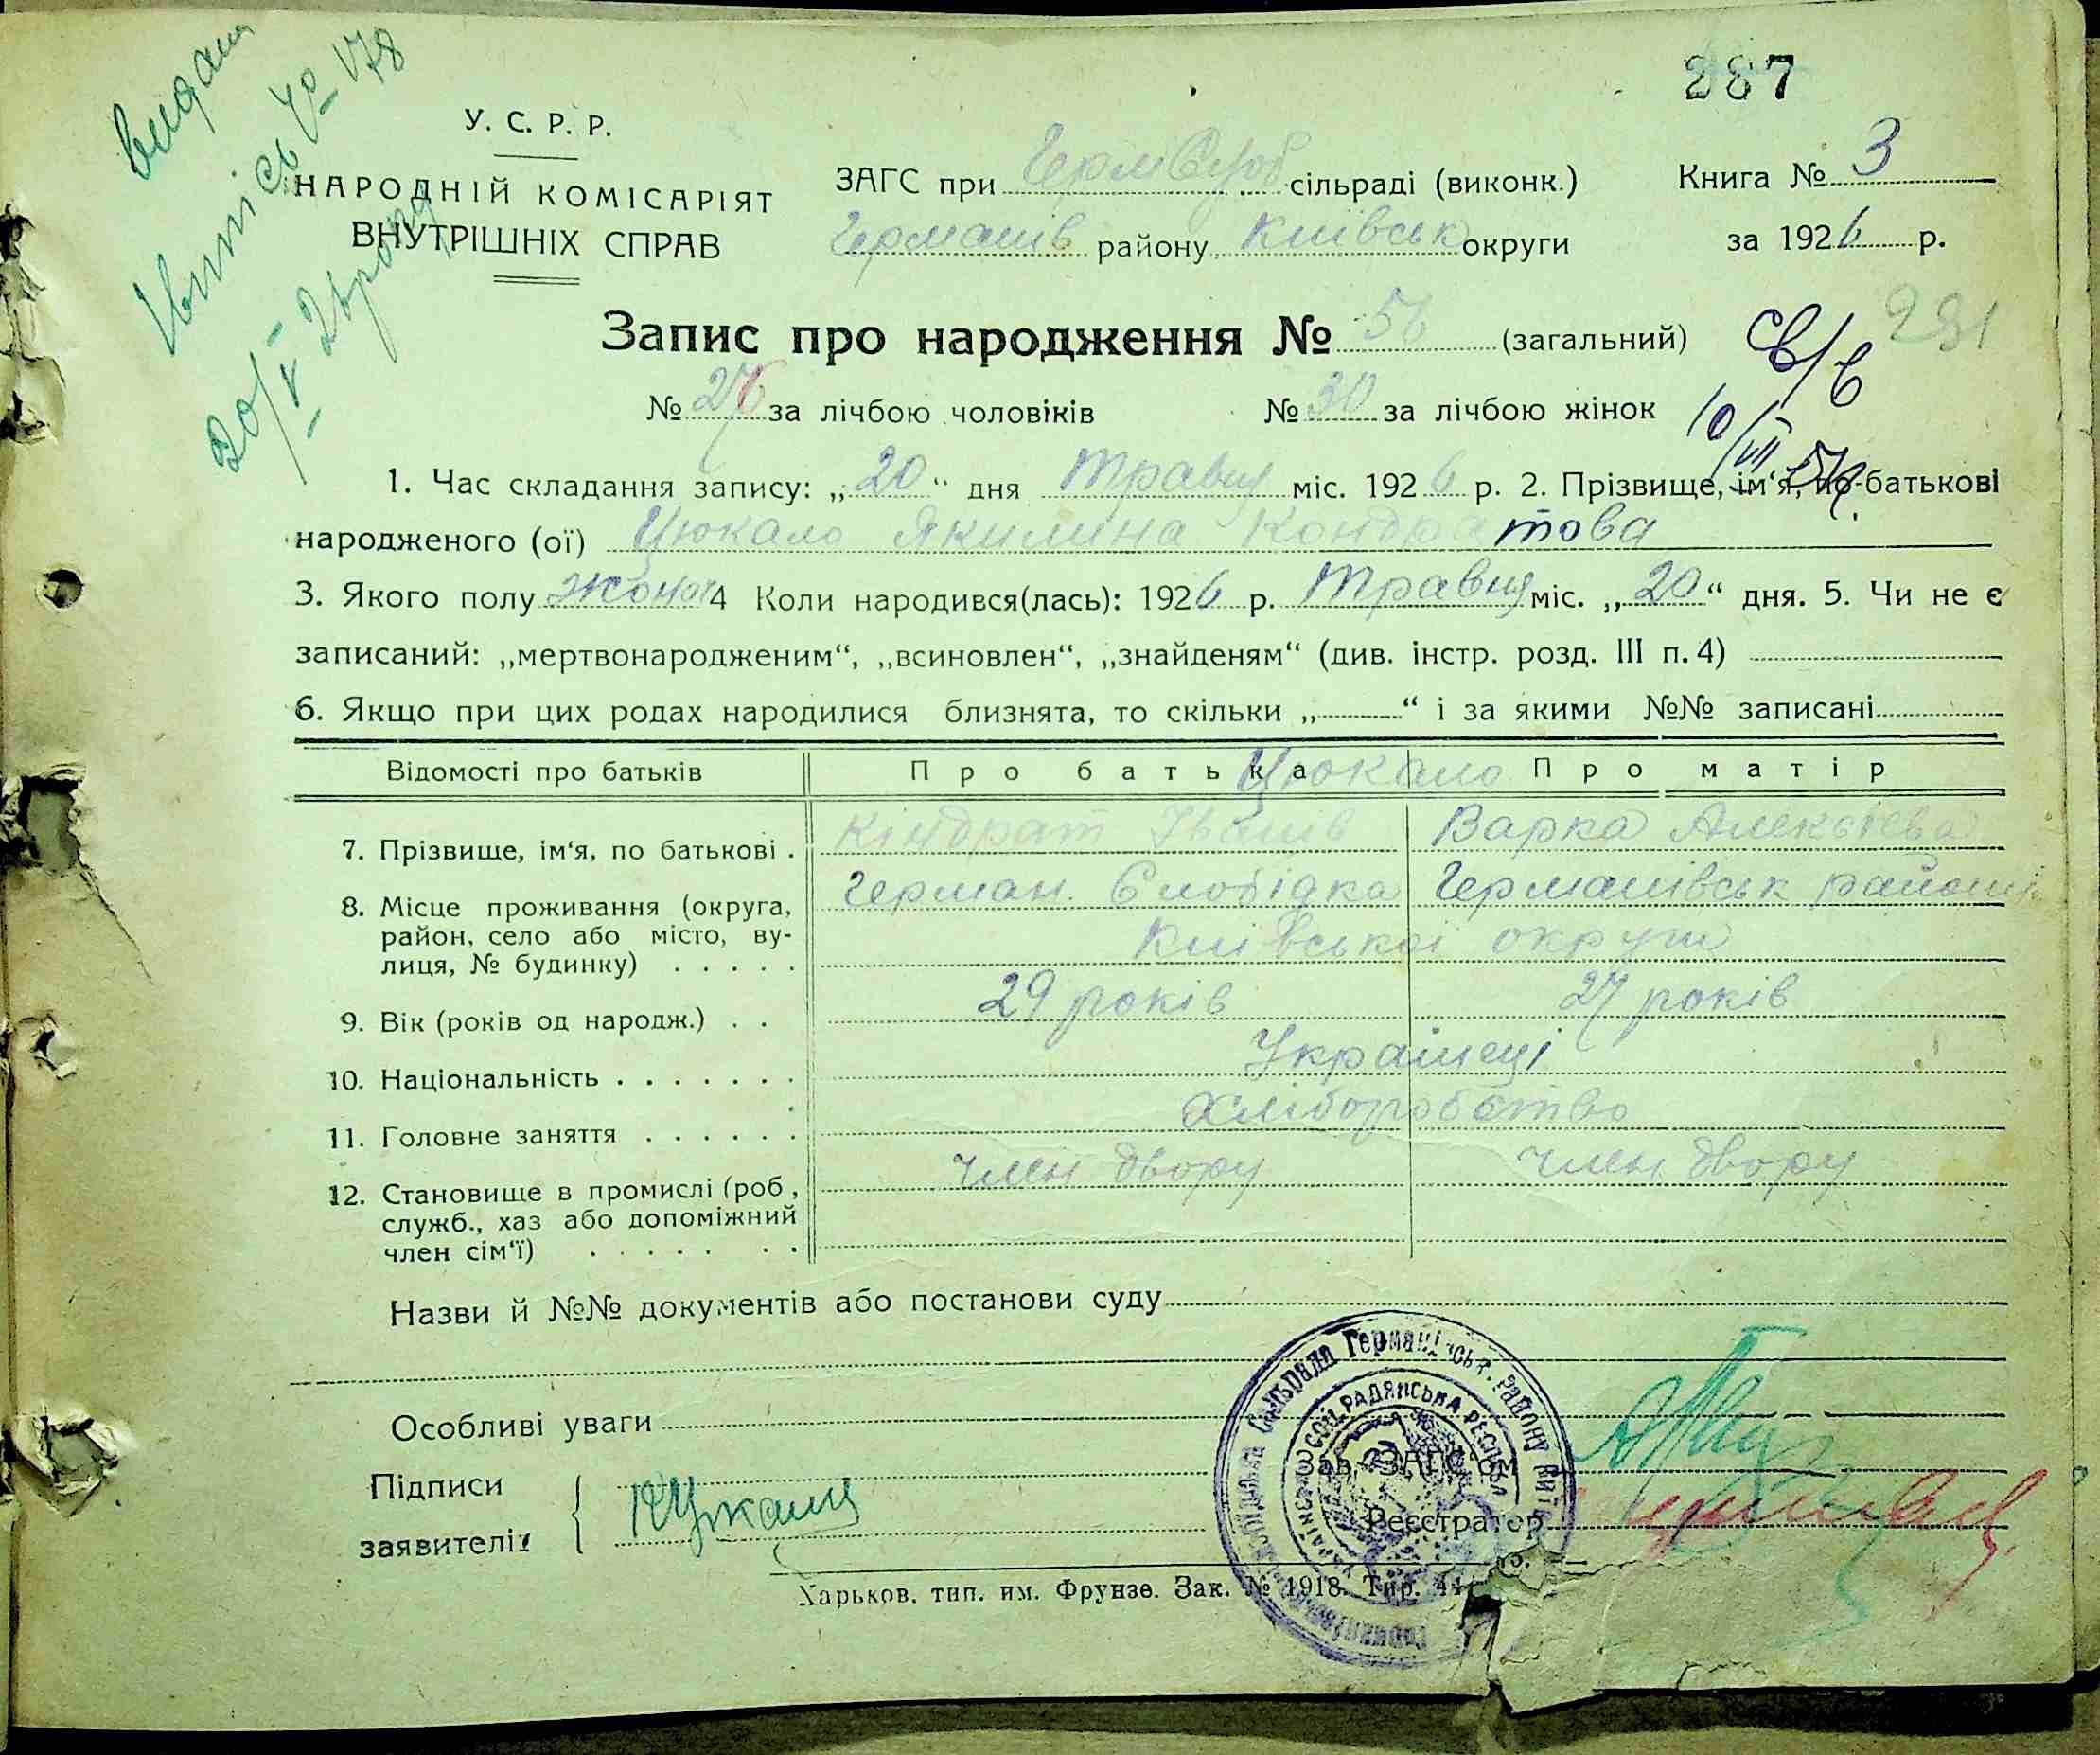 287
видан
Витісь № 178
20/V 26 року
У. С. Р. Р.
НАРОДНІЙ КОМІСАРІЯТ
ВНУТРІШНІХ СПРАВ
ЗАГС при ГермСлоб сільраді (виконк.)
Германів району Київськ округи
Книга № 3
за 1926 р.
Запис про народження № 56 (загальний)
291
№ 26 за лічбою чоловіків № 30 за лічбою жінок
10/VII
1. Час складання запису: „20“ дня Травня міс. 1926 р. 2. Прізвище, ім‘я, по-батькові
народженого (ої) Цюкало Якилина Кондратова
3. Якого полу жіноч 4 Коли народився(лась): 1926 р. Травня міс. „20“ дня. 5. Чи не є
записаний: „мертвонародженим“, „всиновлен“, „знайденям“ (див. інстр. розд. III п. 4)
6. Якщо при цих родах народилися близнята, то скільки „—“ і за якими №№ записані
Відомості про батьків Про батька Цюкало Про матір
7. Прізвище, ім‘я, по батькові . Кіндрат Іванів Варка Алексієва
8. Місце проживання (округа, район, село або місто, вулиця, № будинку) . . . . . Герман. Слобідка Германівськ району
Київської округи
9. Вік (років од народж.) . . 29 років 27 років
10. Національність . . . . . . . Українці
11. Головне заняття . . . . . . Хліборобство
12. Становище в промислі (роб, служб., хаз або допоміжний член сім‘ї) . . . . . . . член двору член двору
Назви й №№ документів або постанови суду
Особливі уваги
Підписи
заявителів
КЦюкали
Зав. ЗАГС‘ом
Реєстратор
Сільрада Германівськ. Району
УКРАЇНСЬКА СОЦ. РАДЯНСЬКА РЕСПУБЛ
Харьков. тип. им. Фрунзе. Зак. № 1918. Тир.